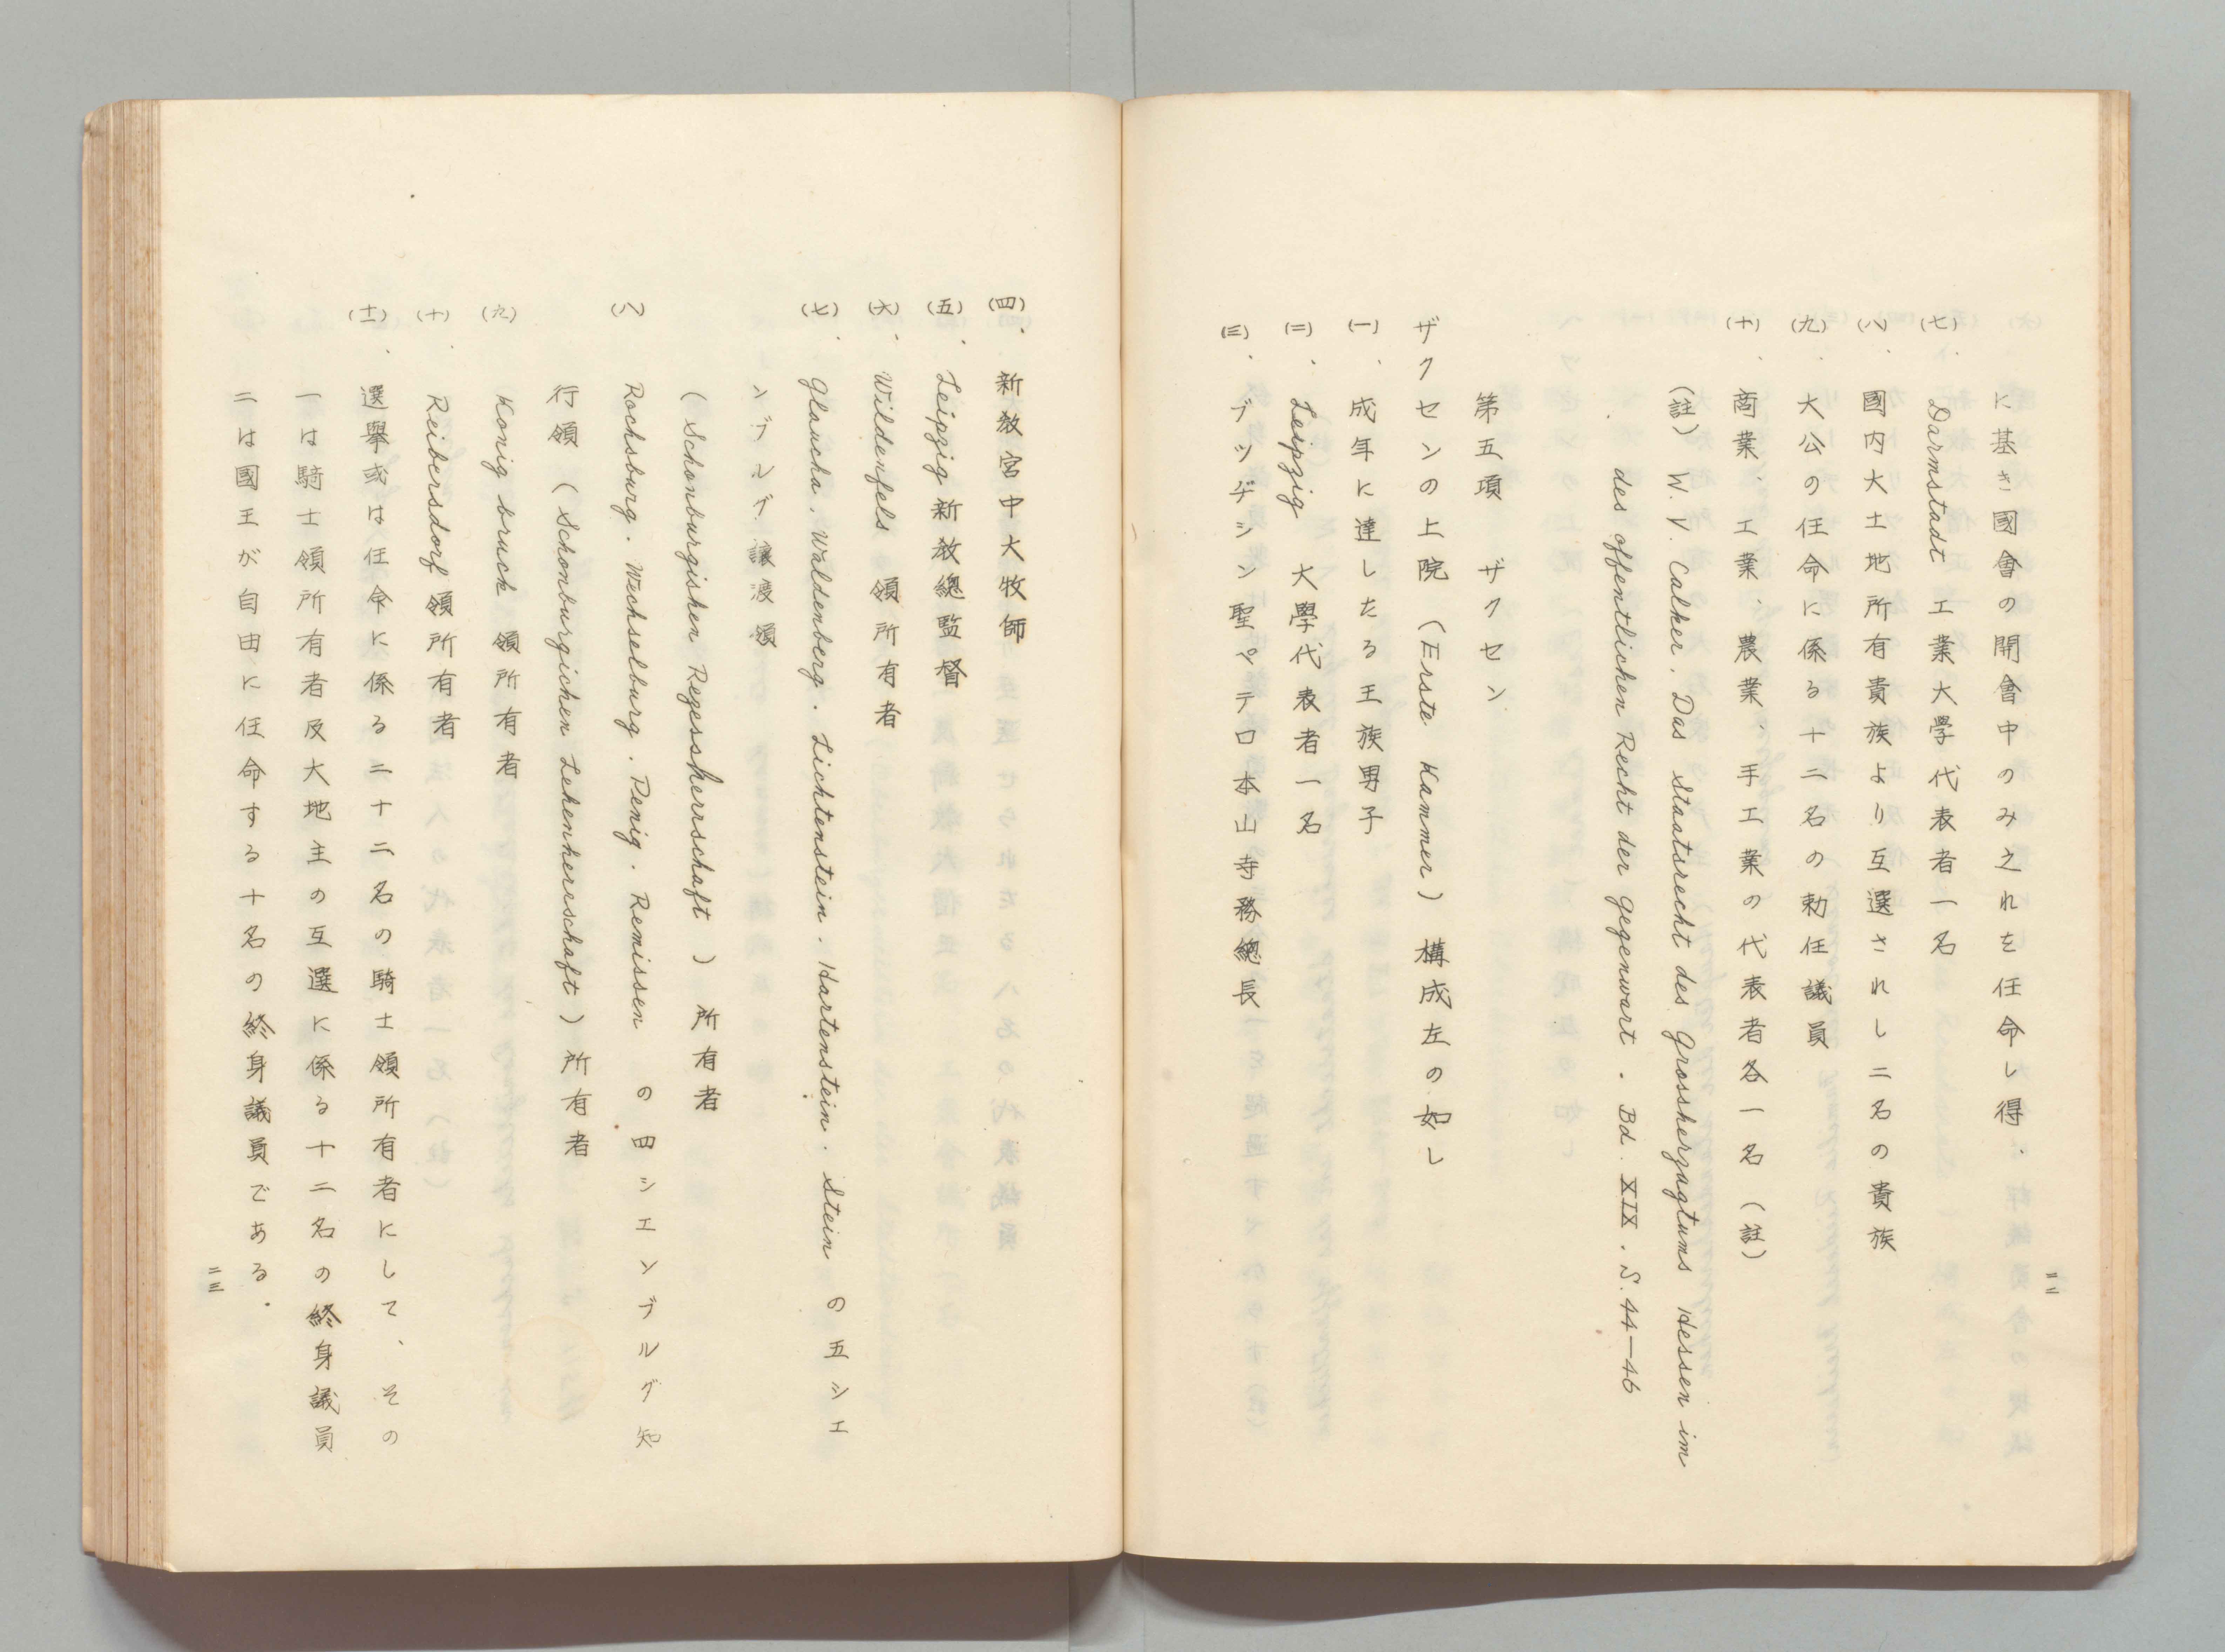 に基き國會の開會中のみ之れを任命し得.
(七). Darmstadt 工業大学代表者一名
(八). 國内大土地所有貴族より互選されし二名の貴族
(九). 大公の任命に係る十二名の勅任議員
(十). 商業、工業、農業、手工業の代表者各一名(註)
(註) W. V. Calker. Das Staatsrecht des Grosshergagtums Hessen im
des offentlichen Recht der gegenwart. Bd. XIX. S. 44—46
第五項 ザクセン
ザクセンの上院(Erste Kammer)構成左の如し
(一). 成年に達したる王族男子
(二). Leipzig 大學代表者一名
(三). ブッヂシン聖ペテロ本山寺務總長
二二
(四). 新教宮中大牧師
(五). Leipzig 新教總監督
(六). Wildenfels 領所有者
(七). Glaucha. Waldenberg. Lichtenstein. Hartenstein. Stein の五シエ
ンブルグ譲渡領
(Schonburgisken Regessherrschaft) 所有者
(八) Rochsburg. Wechselburg. Penig. Remissen の四シエンブルグ知
行領(Schonburgichen Lehenherrschaft)所有者
(九) Konig bruck 領所有者
(十). Reibersdorf 領所有者
(十一). 選擧或は任命に係る二十二名の騎士領所有者にして、その
一は騎士領所有者及大地主の互選に係る十二名の終身議員
二は國王が自由に任命する十名の終身議員である.
二三